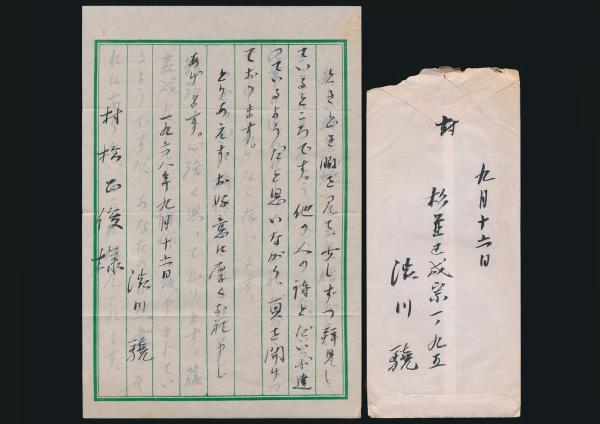 ときどき暇を見て少しずつ拝見し
ているところです。他の人の詩とだいぶ違
っているようだと思いながら、頁を開けっ
ております。
とりあえず、お好意に厚くお礼申し
あげます。
一九六八年九月十六日
渋川驍
村松正俊様
封
九月十六日
杉並区成宗一ノ九五
渋川驍